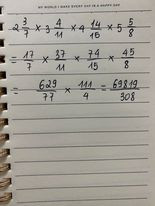 MY WORLD I MAKE EVERY DAY IS A HAPPY DAY
2 3/7 × 3 4/11 × 4 14/15 × 5 5/8
= 17/7 × 37/11 × 74/15 × 45/8
= 629/77 × 111/4 = 69819/308